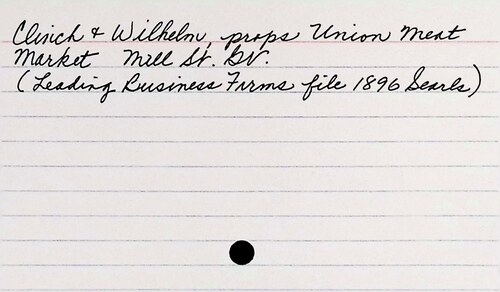 Clinch & Wilhelm, props Union Meat
Market Mill St. GV.
(Leading Business Firms file 1896 Searls)